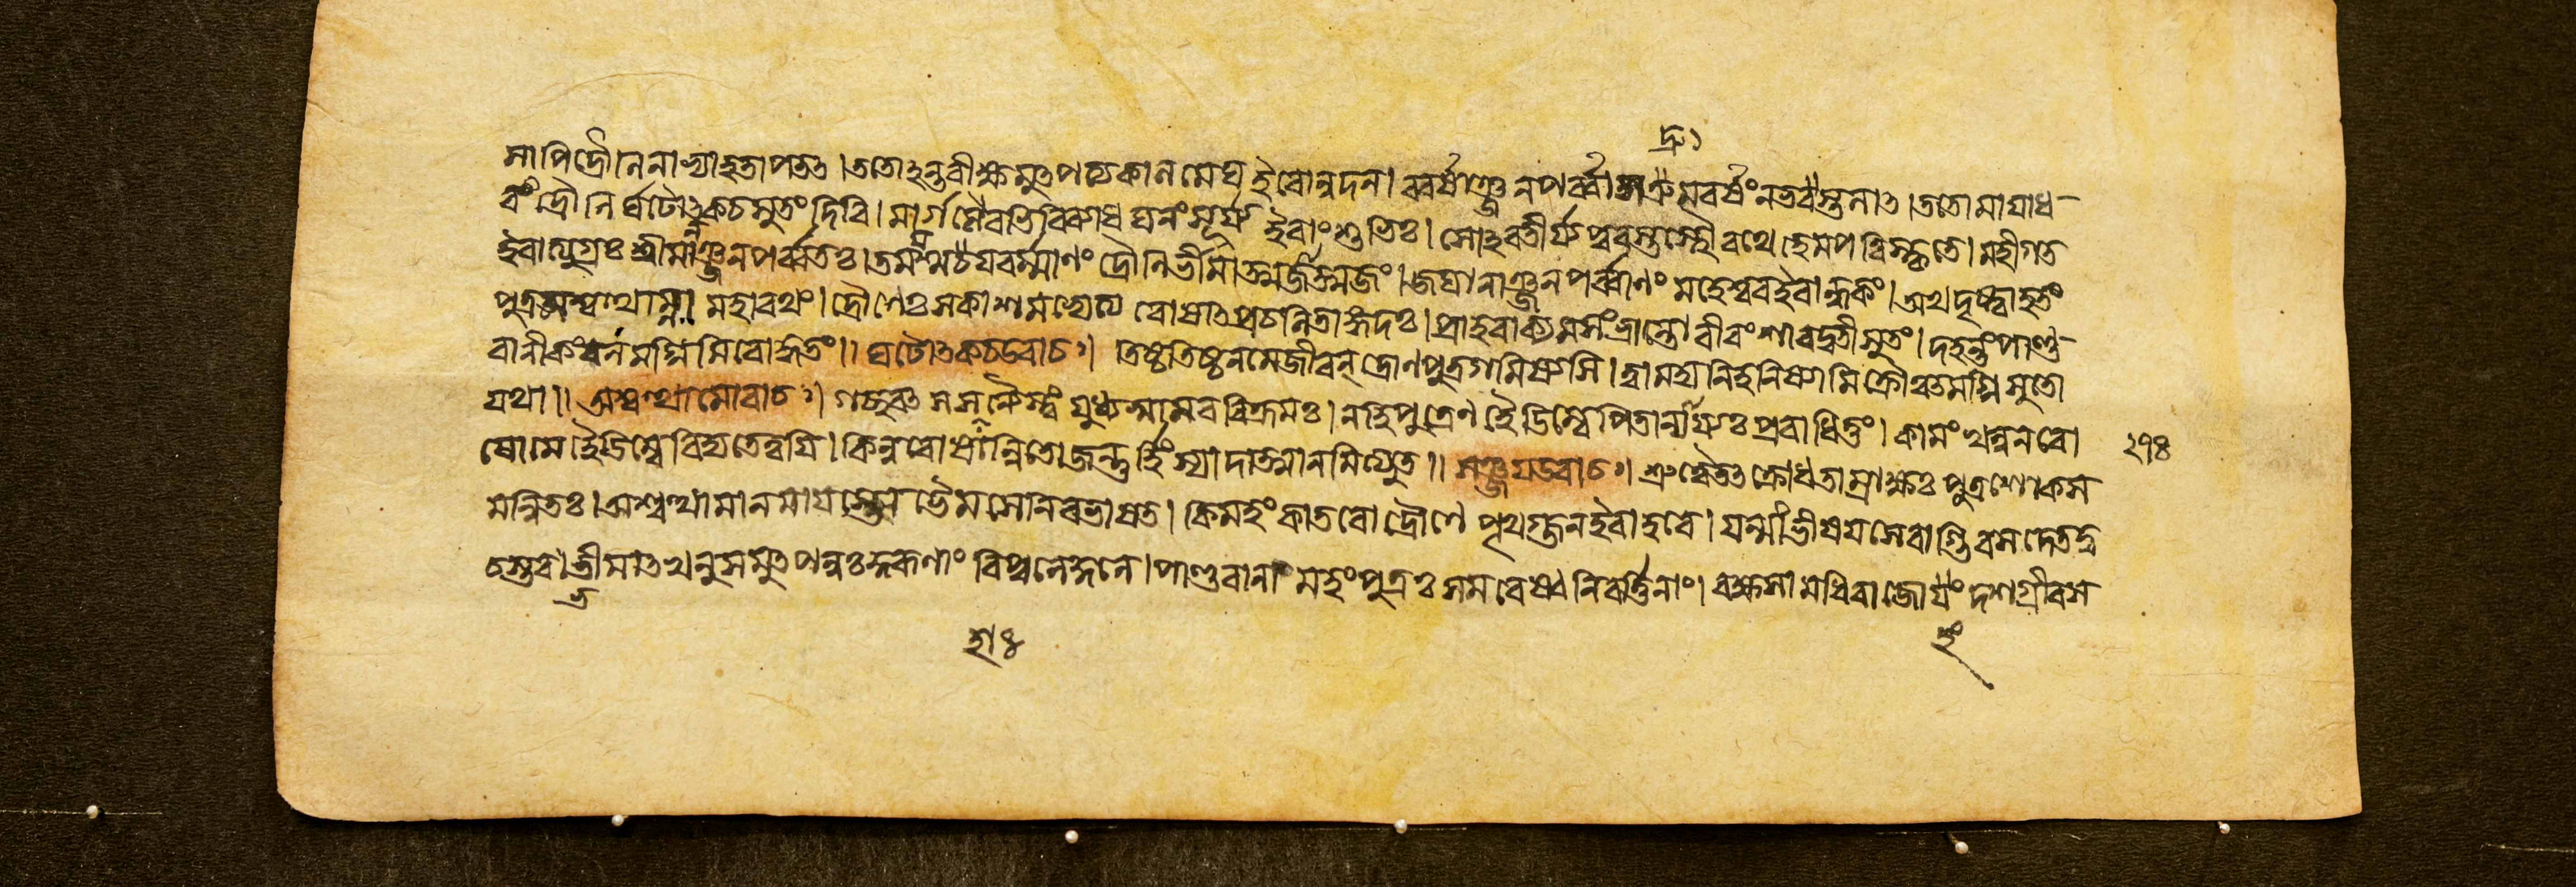 সাপিদ্রৌণিনাখ্যাহতাপতৎ।ততোঽন্তরীক্ষমুৎপত্যকালমেঘইবোন্নদন।ববর্ষাঞ্জনপর্ব্বাদ্রুমবর্ষংনভস্তলাৎ।ততোমায়াধ-
রংদ্রৌণির্ঘটোৎকচসুতংদিবি।মার্গণৈরভিবিব্যাধঘনংসূর্য্যইবাংশুভিঃ।সোঽবতীর্য্যপুনস্তস্থৌরথেহেমপরিষ্কৃতে।মহীগত
ইবাত্যুগ্রঃশ্রীমানঞ্জনপর্ব্বতঃ।তময়স্ময়বর্ম্মাণংদ্রৌণির্ভীমাত্মজাত্মজং।জঘানাঞ্জনপর্ব্বাণংমহেশ্বরইবান্ধকং।অথদৃষ্ট্বাহতং
পুত্রমশ্বত্থাম্নামহারথং।দ্রৌণেঃসকাশমভ্যেত্যরোষাৎপ্রচলিতাঙ্গদঃ।প্রাহবাক্যমসংভ্রান্তোবীরংশারদ্বতীসুতং।দহন্তংপাণ্ড-
বানীকংবনমগ্নিমিবোত্থিতং॥ঘটোৎকচউবাচ॥তিষ্ঠতিষ্ঠনমেজীবন্দ্রোণপুত্রগমিষ্যসি।ত্বামদ্যনিহনিষ্যামিক্রৌঞ্চমগ্নিসুতো
যথা॥অশ্বত্থামোবাচ॥গচ্ছবৎসসহান্যৈস্ত্বংযুধ্যস্বামরবিক্রমঃ।নহিপুত্রেণহৈডিম্বেপিতান্যায্যঃপ্রবাধিতুং।কামংখলুনরো
ষোমেহৈডিম্বেবিদ্যতেত্বয়ি।কিন্তুরোষান্বিতোজন্তুর্হিংস্যাদাত্মানমপ্যুত॥সঞ্জয়উবাচ॥শ্রুত্বৈতৎক্রোধতাম্রাক্ষঃপুত্রশোকস
মন্বিতঃ।অশ্বত্থামানমায়স্তোভৈমসেনিরভাষত।কিমহংকাতরোদ্রৌণেপৃথগ্জনইবাহবে।যন্মাংভীষয়সেবাগ্ভিরসদেতদ্ব
চস্তব।ভীমাৎখলুসমুৎপন্নঃকুরূণাংবিপুলেকুলে।পাণ্ডবানামহংপুত্রঃসমরেষ্বনিবর্ত্তিনাং।রক্ষসামধিরাজোঽহংদশগ্রীবস
২৭৪